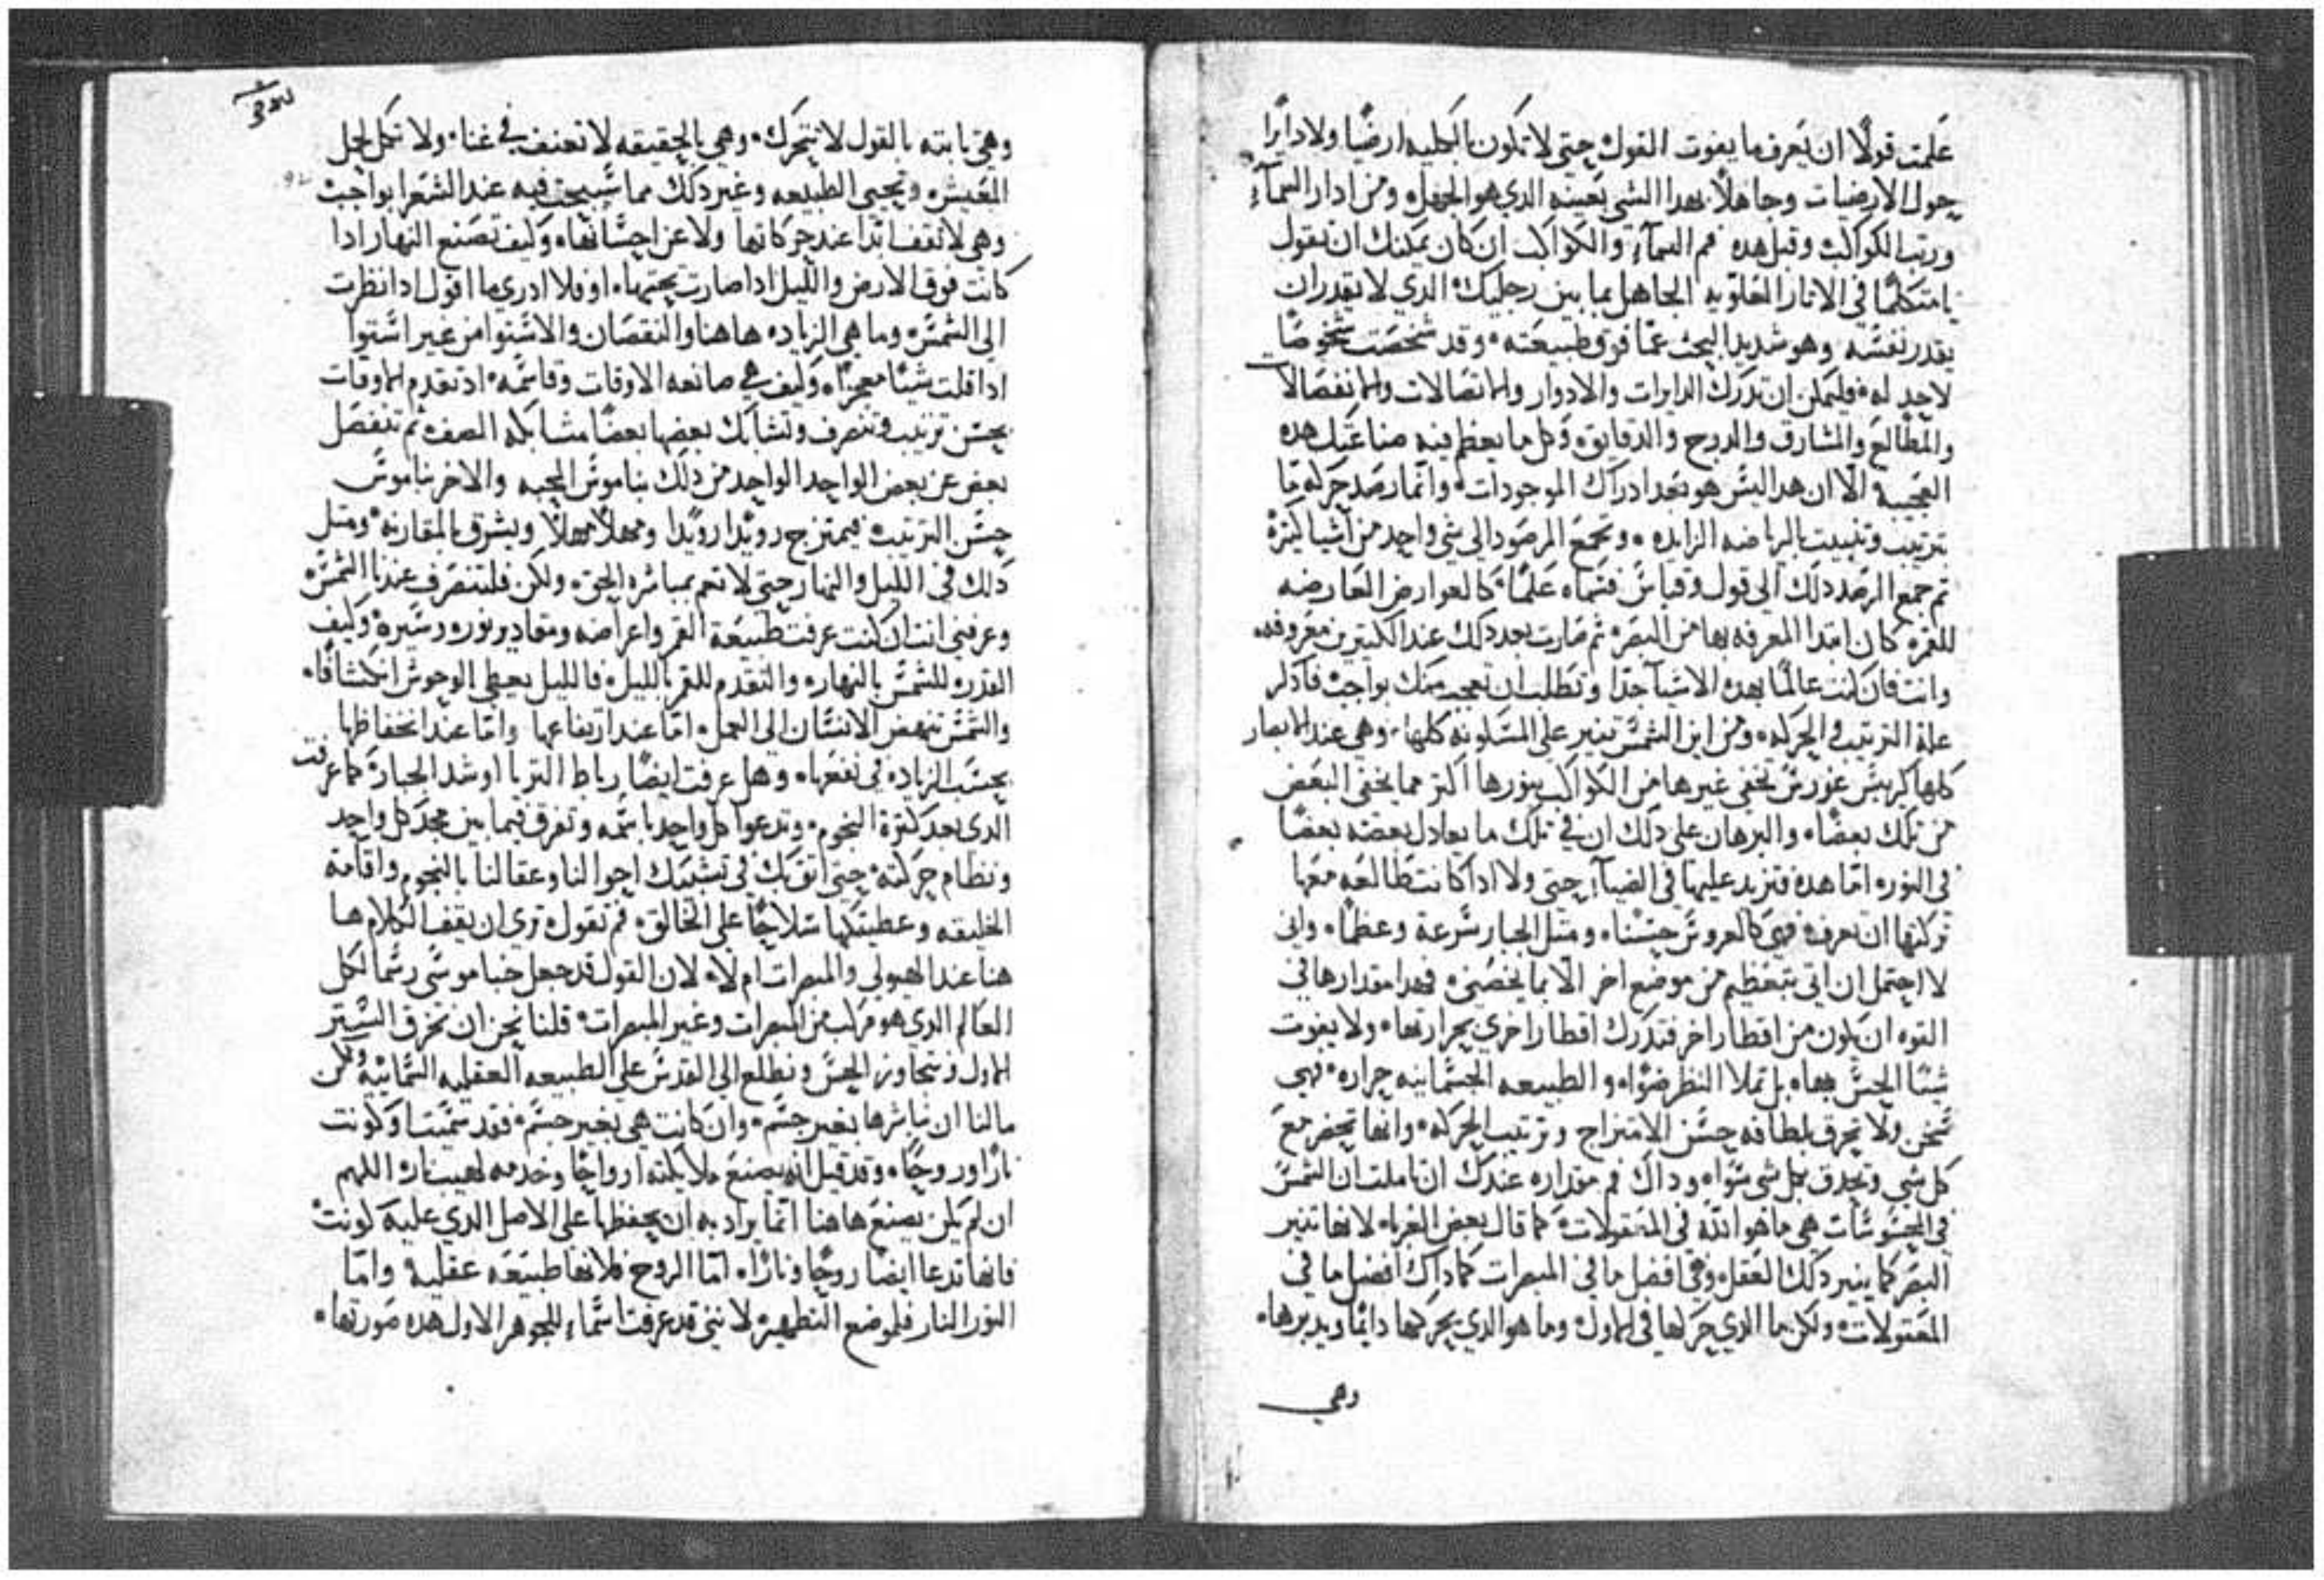 علمت قولًا ان يعرف ما يفوت القول حتى لا تكون بالكليه ارضيًا ولا دايرا
حول الارضيات وجاهلًا بهدا الشي بعينه الدي هو الجهل ومن ادار السمآء
ورتب الكواكب وقبل هده فم السمآء والكواكب ان كان يمكنك ان تقول
يا متكلمًا في الاثار العلويه الجاهل بما بين رجليك الدي لا تقدر ان
يقدر نفسه وهو شديد البحث عمّا فوق طبيعته وقد شخصت شخوصًا
لا حد له فليمكن ان تدرك الدايرات والادوار والاتصالات والانفصالات
والمطالع والمشارق والدرج والدقايق وكل ما يعظم فيه صناعتك هده
العجيبة الّا ان هدا ليس هو بعد ادراك الموجودات وانّما رصد حركه ما
بترتيب وتثبيت بالرياضه الزايده وتجمع المرصود الى شي واحد من اشيا كثرة
ثم جمع الرصد دلك الى قول وقياس فسماه علمًا كالعوارض العارضه
للقمر كان ابتدا المعرفه بها من البصر ثم صارت بعد دلك عند الكثيرين معروفه
وانت فان كنت عالمًا بهده الاشيآ جدًا وتطلب ان تعجب منك بواجب فادكر
علة الترتيب والحركه ومن اين الشمس تنير على المسكونه كلها وهي عند الابصار
كلها كريس غورس تخفي غيرها من الكواكب بنورها اكثر مما يخفي البعض
من تلك بعضًا والبرهان على دلك ان في تلك ما يعادل بعضه بعضًا
في النور امّا هده فتزيد عليها في الضيآء حتى ولا ادا كانت طالعه معها
تركتها ان تعرف فهي كالعروس حسنا ومثل الجبار سرعة وعظمًا واني
لا احتمل ان اتي بتعظيم من موضع اخر الّا بما يخصني فهدا مقدارها في
القوه ان تكون من اقطار اخر فتدرك اقطارا اخرى بحرارتها ولا يفوت
شيئًا الحس بها بل تملا النظر ضوًا والطبيعه الجسمانيه حراره فهي
تسخن ولا تحرق بلطافه حسن الامتزاج وترتيب الحركه وانها تحضر مع
كل شي وتحدق بكل شي سوا وداك فم مقداره عندك ان تاملت ان الشمس
في المحسوسات هي ما هو الله في المعقولات كما قال بعض الغربا لانها تنير
البصر كما ينير دلك العقل وهي افضل ما في المبصرات كما داك افضل ما في
المعقولات ولكن ما الدي حركها في الاول وما هو الدي يحركها دايمًا ويديرها
وهي
وهي ثابته بالقول لا تتحرك وهي بالحقيقه لا تعنف في غنا ولا تكل لحل
المعيشه وتحيي الطبيعه وغير دلك مما سبحت فيه عند الشعرا بواجب
وهي لا تقف ابدًا عند حركاتها ولا عن احسانها وكيف تصنع النهار ادا
كانت فوق الارض والليل ادا صارت تحتها او فلا ادري ما اقول ادا نظرت
الى الشمس وما هي الزياده هاهنا والنقصان والاستوا من غير استوا
ادا قلت شيئًا معجزًا وكيف هي صانعه الاوقات وقاسمه اد تقدم الاوقات
بحسن ترتيب وتنصرف وتشابك بعضها بعضًا مشابكه الصف ثم تنفصل
بعض عن بعض الواحد الواحد من دلك بناموس المحبه والاخر بناموس
حسن الترتيب فيمتزج رويدا رويدا ومهلًا مهلًا ويسرق بالمقارنه ومثل
دلك في الليل والنهار حتى لا تعم بمباشره الحزن ولكن فلتنصرف عندنا الشمس
وعرفني انت ان كنت عرفت طبيعة القمر واعراضه ومقادير نوره وسيره وكيف
القدره للشمس بالنهار والتقدم للقمر بالليل فالليل يعطي الوحوش انكشافًا
والشمس تنهض الانسان الى العمل امّا عند ارتفاعها وامّا عند انخفاظها
بحسب الزياده في نفعها وهل عرفت ايضًا رباط الثريا او شد الجبارة كما عرفت
الدي يعد كثرة النجوم وتدعوا كل واحد باسمه وتفرق فيما بين مجد كل واحد
ونظام حركته حتى اثق بك في تشبيك احوالنا وعقالنا بالنجوم واقامة
الخليقه وعطيتكها سلاحًا على الخالق فم تقول ترى ان يقف الكلام ها
هنا عند الهيولى والمبصرات ام لا لان القول قد جعل خبا موسى رسمًا لكل
العالم الدي هو مركب من المبصرات وغير المبصرات قلنا نحن ان نخرق الستر
الاول ونتجاوز الحس ونطلع الى القدس على الطبيعه العقليه السمائيه ولكن
ما لنا ان نباشرها بغير جسم وان كانت هي بغير جسم فقد سميت او كونت
نارًا وروحًا وقد قيل انه يصنع ملايكته ارواحًا وخدمه لهيب نار اللهم
ان لم يكن يصنع هاهنا انما يراد به ان يحفظها على الاصل الدي عليه كونت
فانها تدعا ايضًا روحًا ونارًا امّا الروح فلانها طبيعه عقلية وامّا
النور النار فلموضع التطهير لانني قد عرفت اسماء للجوهر الاول هده صورتها